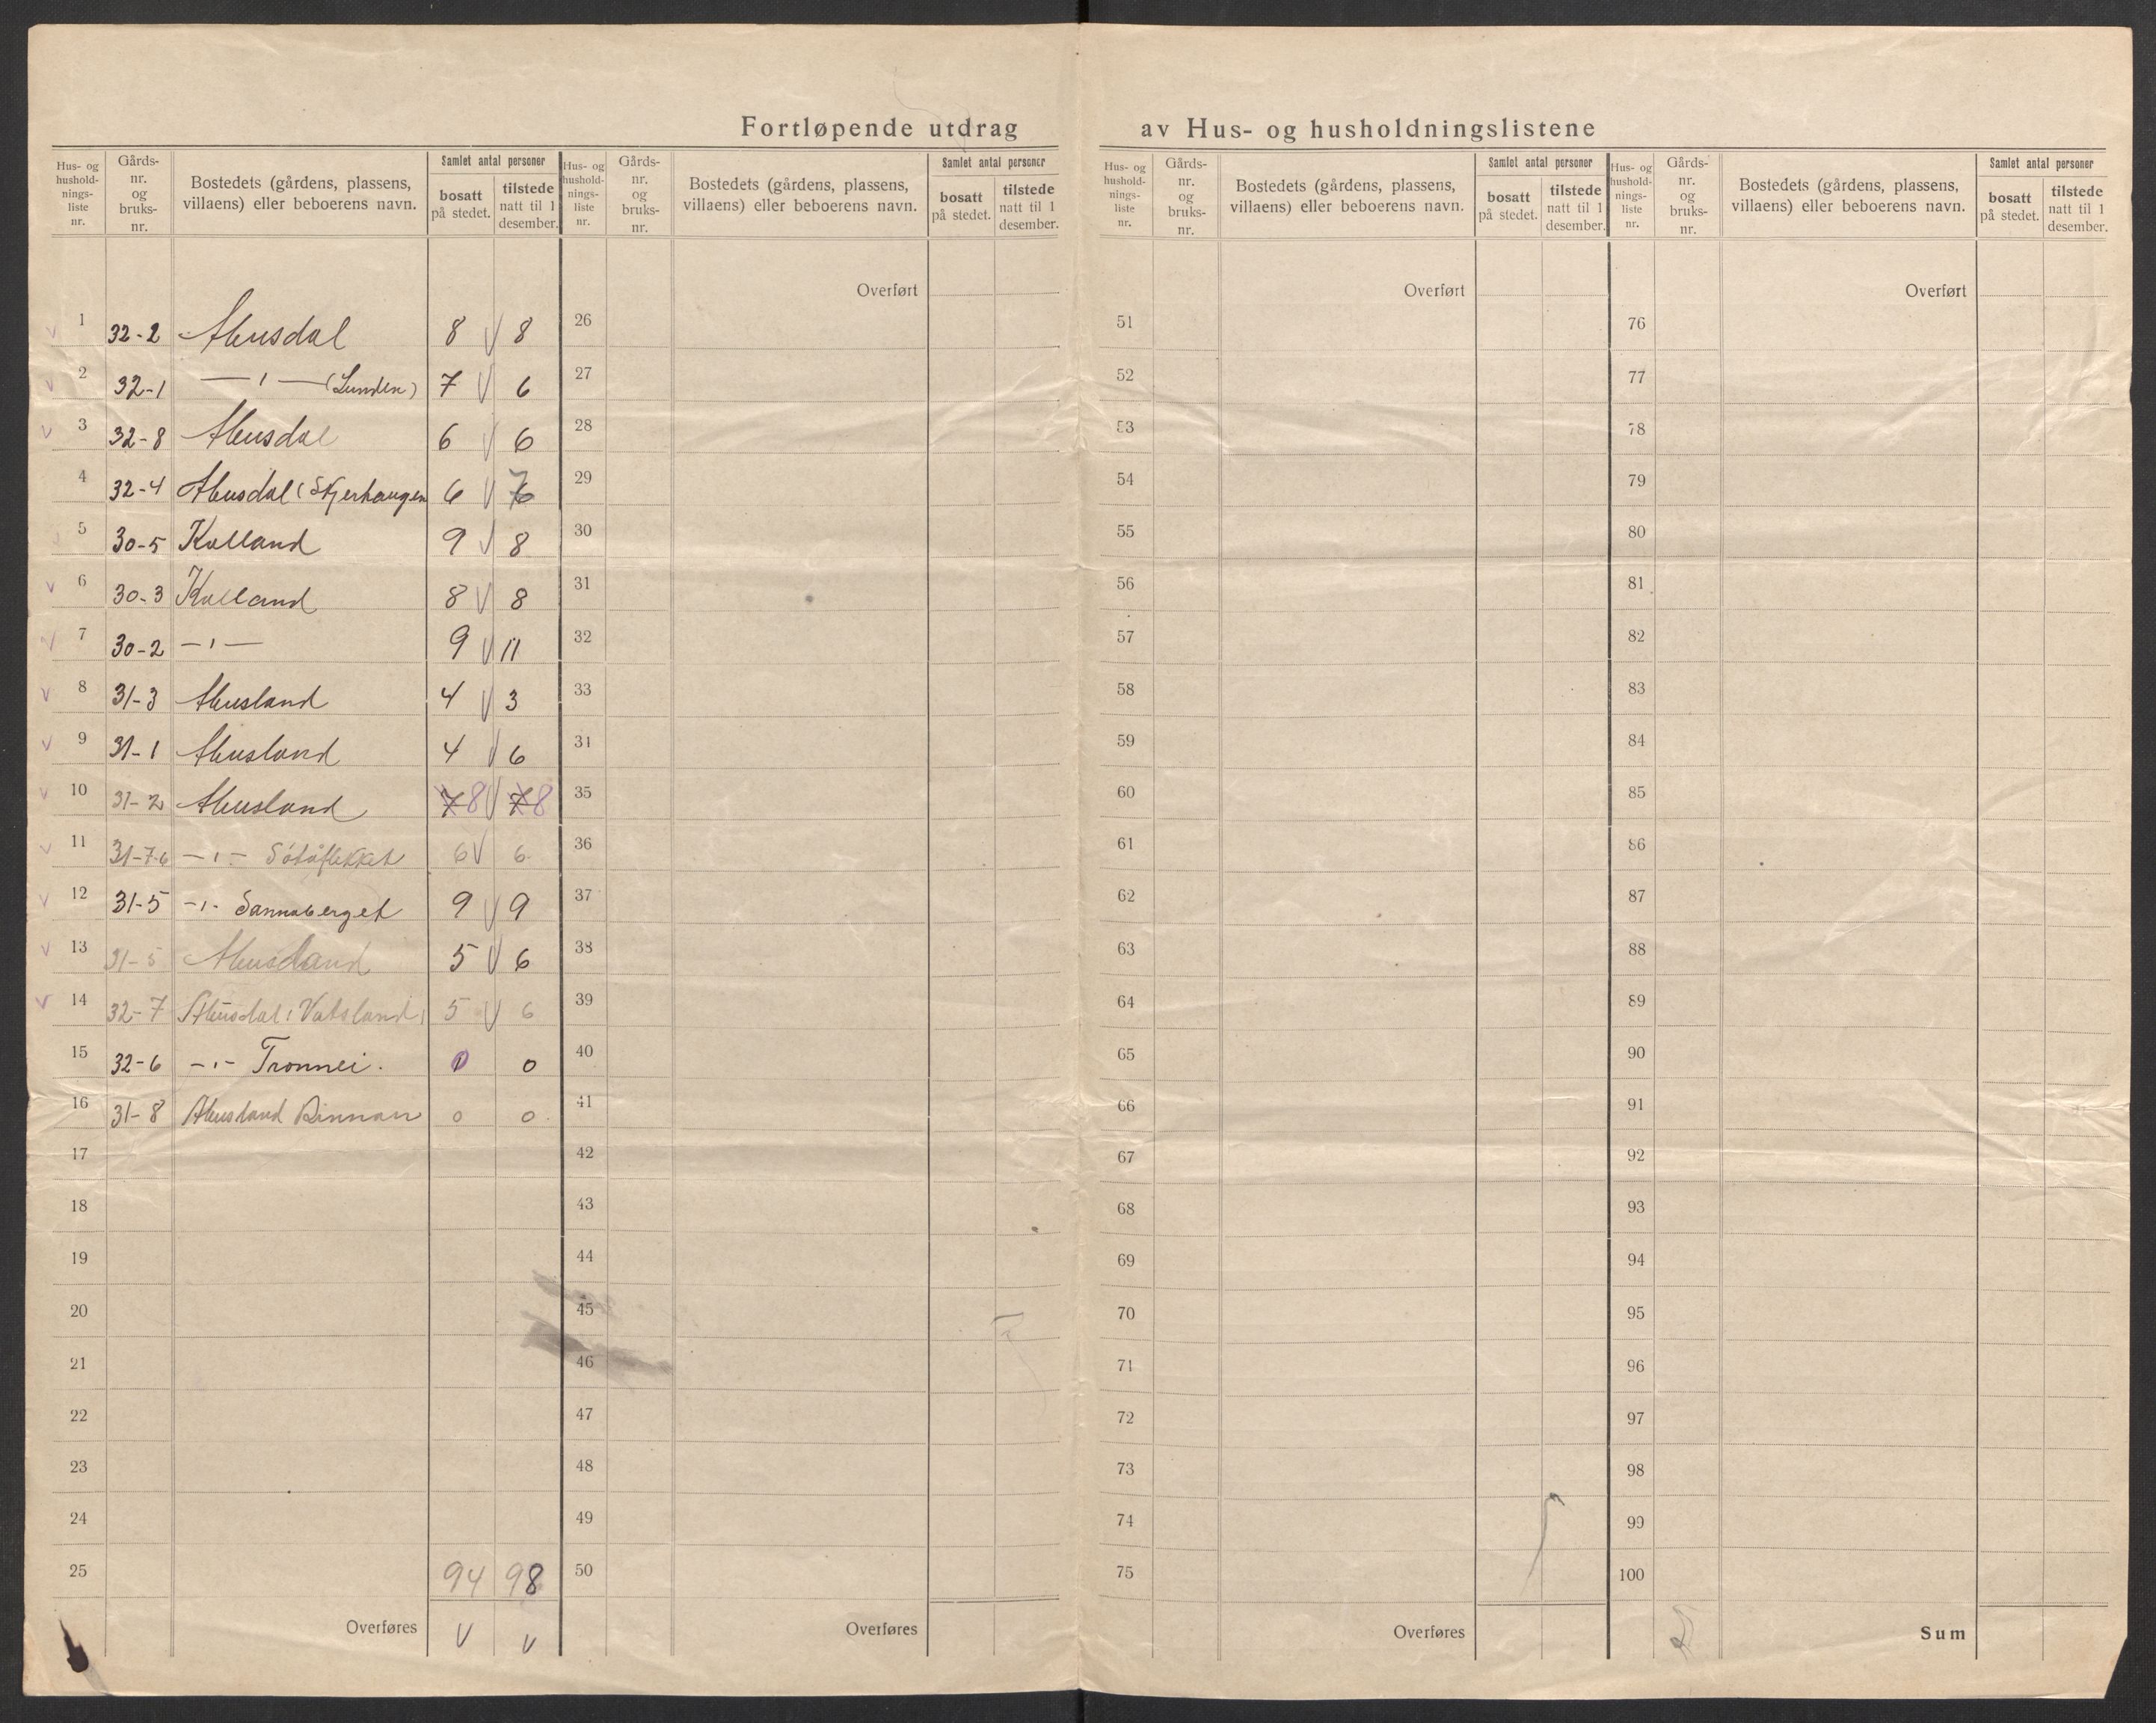 Fortløpende utdrag av Hus- og husholdningslistene
Hus- og husholdnings-liste nr. Gårds-nr. og bruks-nr. Bostedets (gårdens, plassens, villaens) eller beboerens navn. Samlet antal personer bosatt på stedet. tilstede natt til 1 desember.
Hus- og husholdnings-liste nr. Gårds-nr. og bruks-nr. Bostedets (gårdens, plassens, villaens) eller beboerens navn. Samlet antal personer bosatt på stedet. tilstede natt til 1 desember.
Hus- og husholdnings-liste nr. Gårds-nr. og bruks-nr. Bostedets (gårdens, plassens, villaens) eller beboerens navn. Samlet antal personer bosatt på stedet. tilstede natt til 1 desember.
Hus- og husholdnings-liste nr. Gårds-nr. og bruks-nr. Bostedets (gårdens, plassens, villaens) eller beboerens navn. Samlet antal personer bosatt på stedet. tilstede natt til 1 desember.
Overført Overført Overført
1 32-2 Abusdal 8 V 8 26 51 76
2 32-1 — ı — (Lunden) 7 V 6 27 52 77
3 32-8 Abusdal 6 V 6 28 53 78
4 32-4 Abusdal (Skjerhaugen 6 V 7 29 54 79
5 30-5 Kolland 9 V 8 30 55 80
6 30-3 Kolland 8 V 8 31 56 81
7 30-2 — ı — 9 V 11 32 57 82
8 31-3 Abusland 4 V 3 33 58 83
9 31-1 Abusland 4 V 6 31 59 84
10 31-2 Abusland 7 8 V 7 8 35 60 85
11 31-7-6 — ı — 6 V 6 36 61 86
12 31-5 -ı- Sannaberget 9 V 9 37 62 87
13 31-5 Abusland 5 V 6 38 63 88
14 32-7 Abusdal (Vatsland) 5 V 6 39 64 89
15 32-6 -ı- Tronnei. 0 0 40 65 90
16 31-8 Abusland Rinnan 0 0 41 66 91
17 42 67 92
18 43 68 93
19 44 69 94
20 45 70 95
21 46 71 96
22 47 72 97
23 48 73 98
24 49 74 99
25 94 98 50 75 100
Overføres V V Overføres Overføres Sum